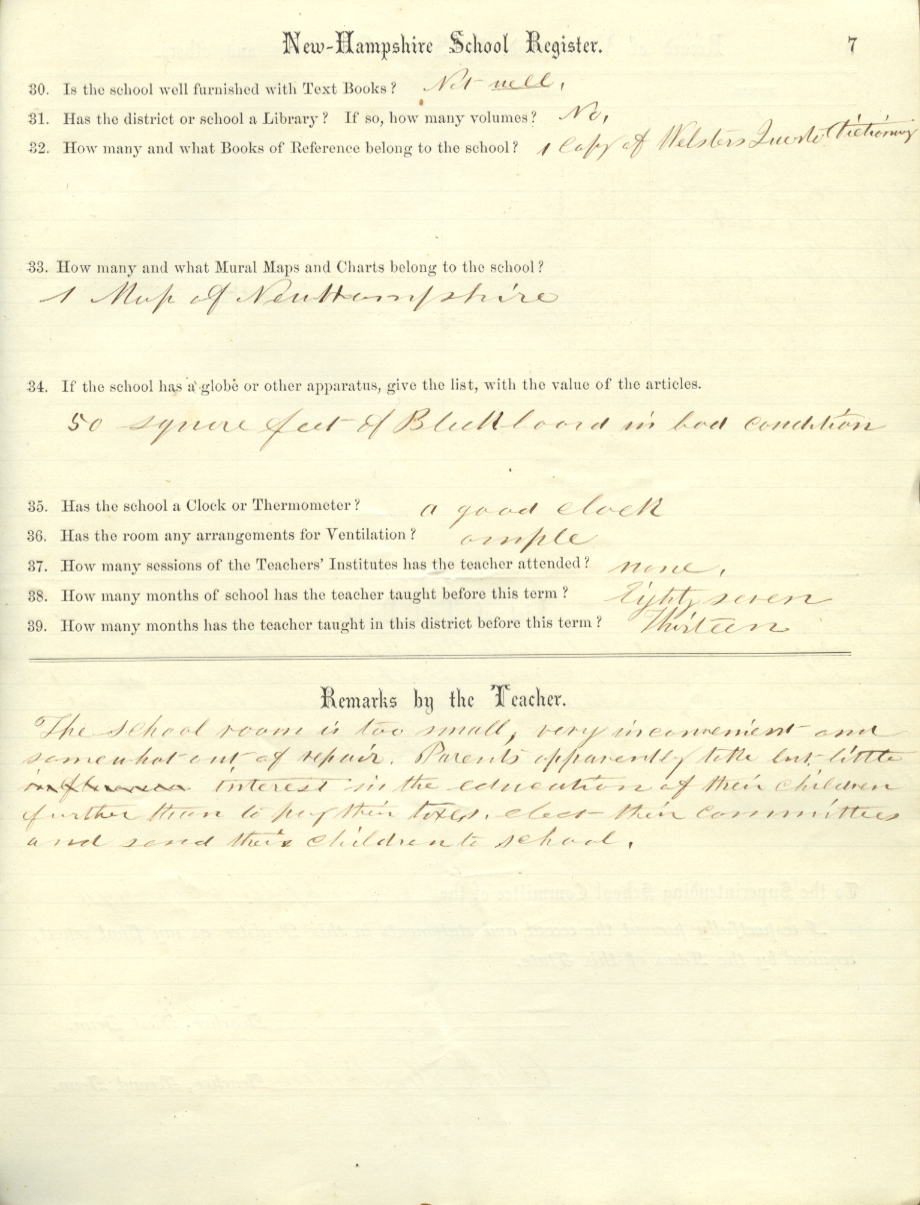 New-Hampshire School Register. 7
30. Is the school well furnished with Text Books? Not well.
31. Has the district or school a Library? If so, how many volumes? No,
32. How many and what Books of Reference belong to the school? 1 Copy of Websters Dictionary
33. How many and what Mural Maps and Charts belong to the school?
1 Map of New Hampshire
34. If the school has a globe or other apparatus, give the list, with the value of the articles.
50 square feet of Blackboard in bad condition
35. Has the school a Clock or Thermometer? a good clock
36. Has the room any arrangements for Ventilation? ample
37. How many sessions of the Teachers' Institutes has the teacher attended? none,
38. How many months of school has the teacher taught before this term? Eighty seven
39. How many months has the teacher taught in this district before this term? Thirteen
Remarks by the Teacher.
The school room is too small, very inconvenient and
somewhat out of repair. Parents apparently take but little
interest in the education of their children
further than to pay their taxes, elect their committees
and send their children to school.